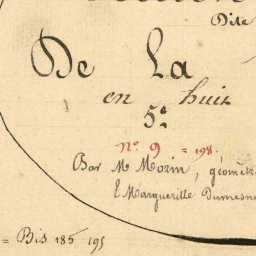 Dite
De La
en huit
5e
No. 9 = 198.
Par Mr Morin, géomètr
E. Marguerille Dumesn
= Bis 185 195